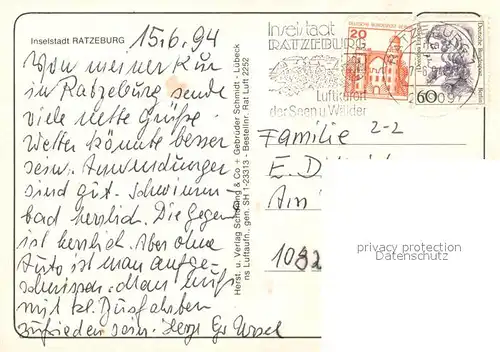 Inselstadt RATZEBURG
15.6.94
Von meiner Kur
in Ratzeburg sende
viele nette Grüße.
Wetter könnte besser
sein. Anwendungen
sind gut. Schwimm-
bad herrlich. Die Gegend
ist herrlich. Aber ohne
Auto ist man aufge-
schmissen. Man muß
mit kl. Busfahrten
zufrieden sein. Herzl. Gr. Ursel
Herst. u. Verlag Schöning & Co + Gebrüder Schmidt - Lübeck
ns Luftaufn., gen. SH 1-23313 - Bestellnr. Rat Luft 2252
Inselstadt
RATZEBURG
Luftkurort
der Seen u Wälder
20
60
Familie
2-2
E. D
Am
1082
privacy protection
Datenschutz